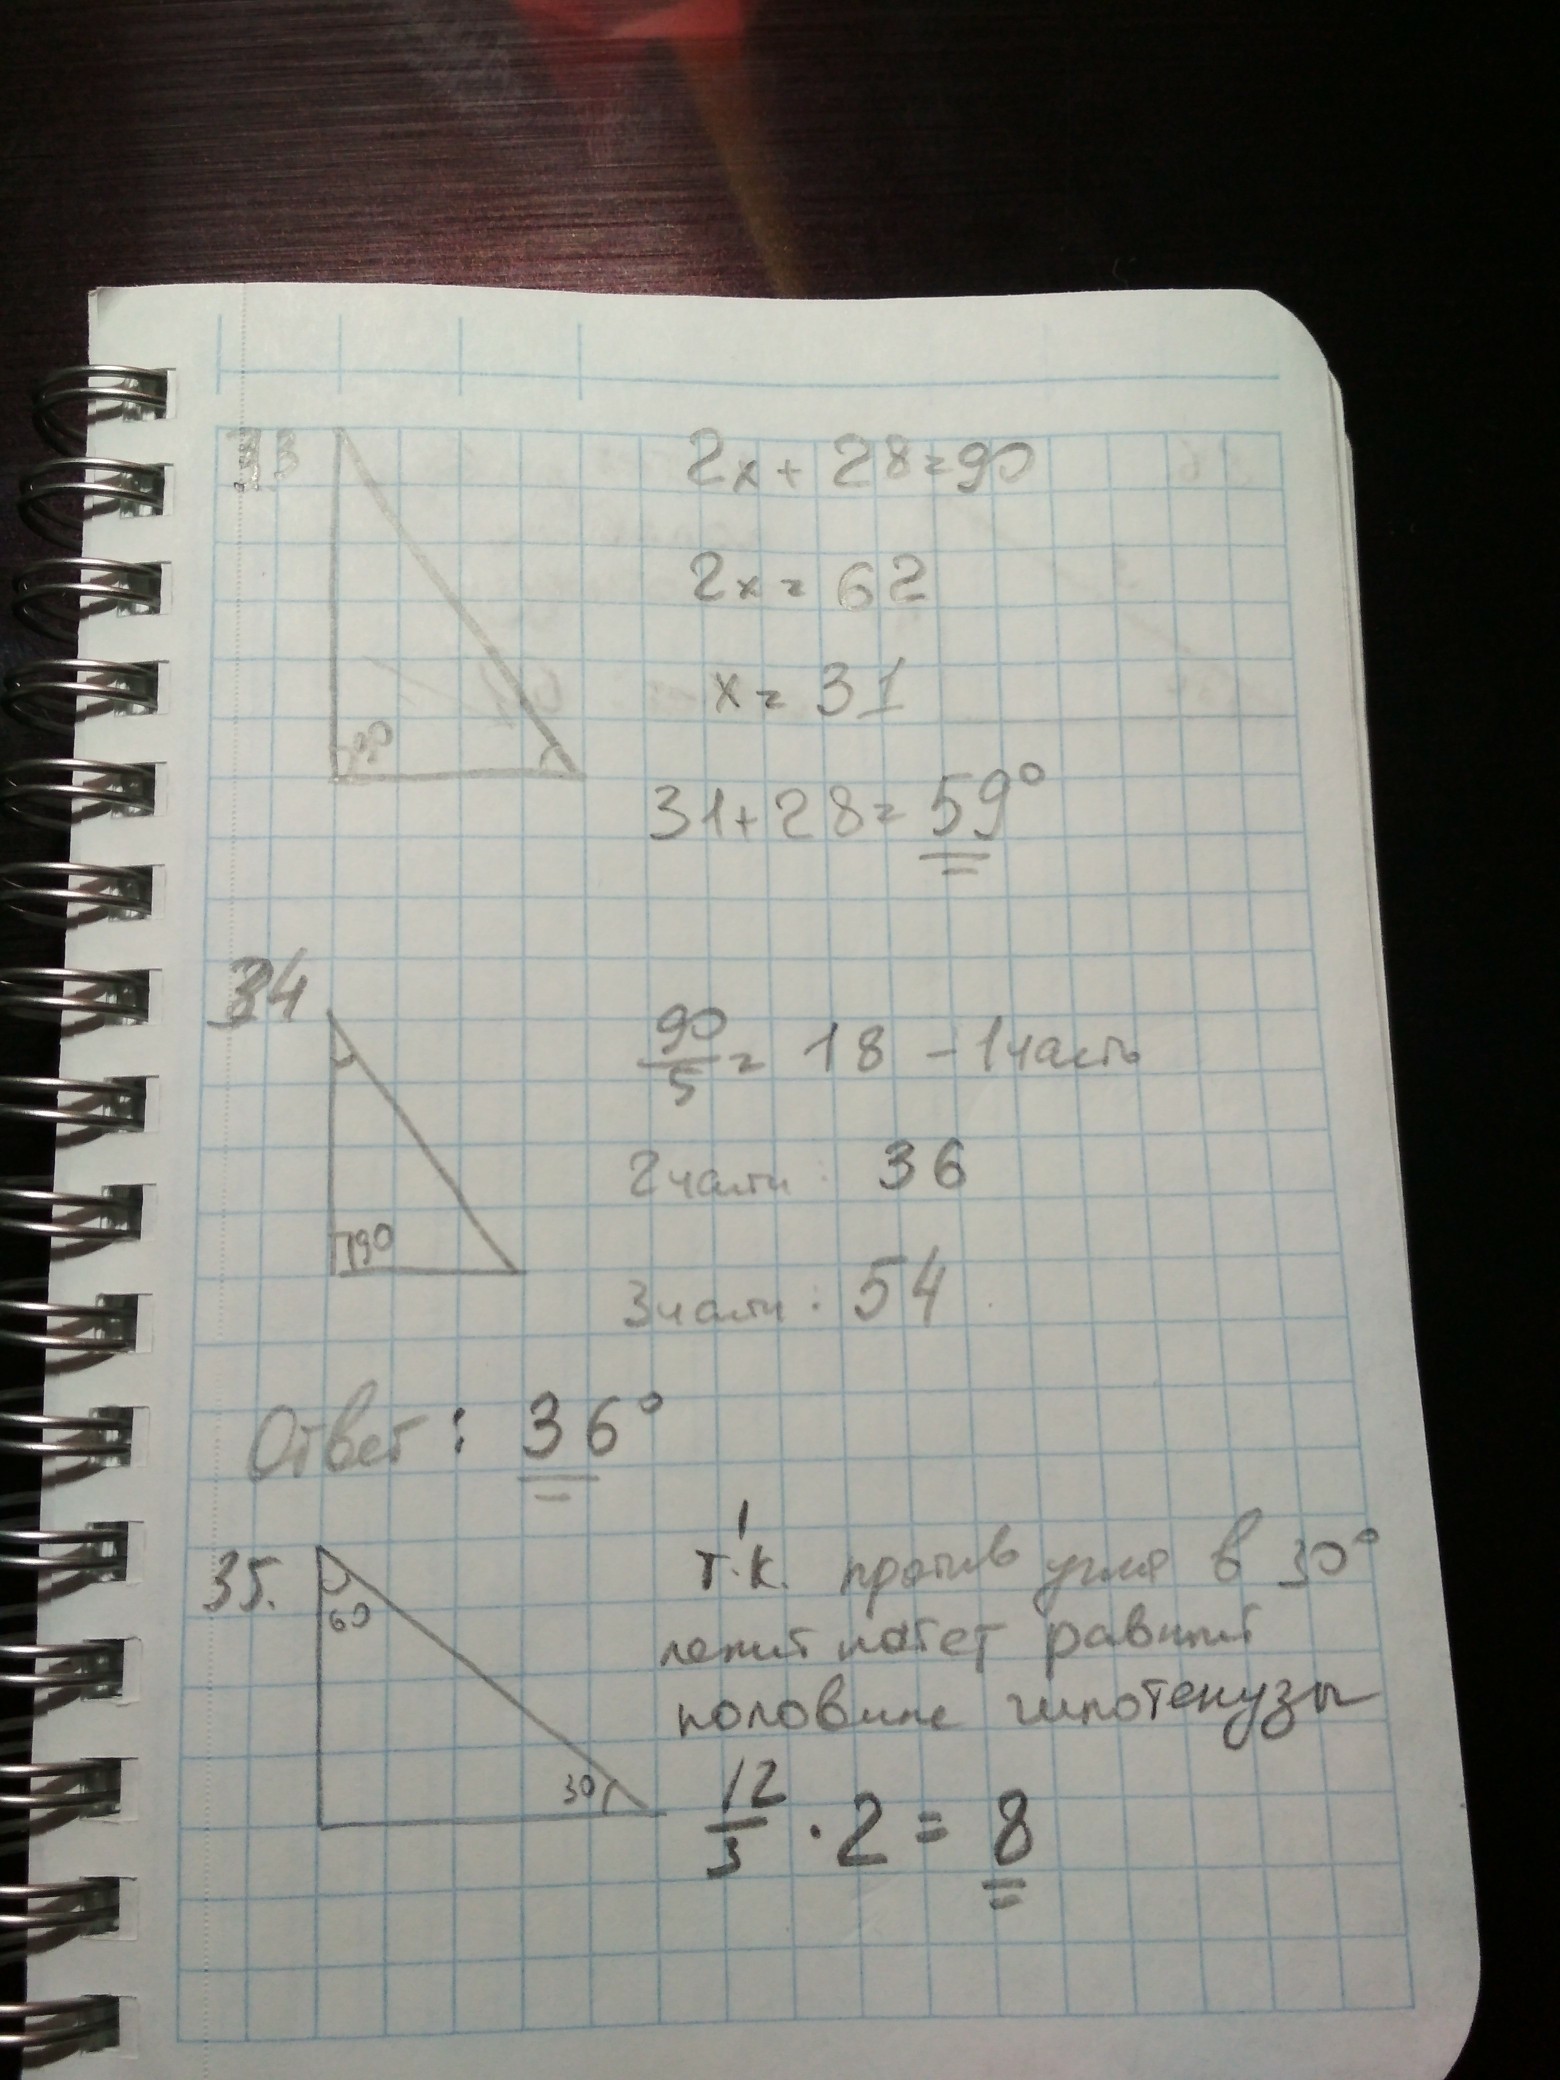 33
2x + 28 = 90
2x = 62
x = 31
90
31 + 28 = 59°
34
90/5 = 18 - 1 часть
2 части : 36
90
3 части : 54
Ответ : 36°
35.
60
т.к. против угла в 30°
лежит катет равный
половине гипотенузы
30
12/3 · 2 = 8